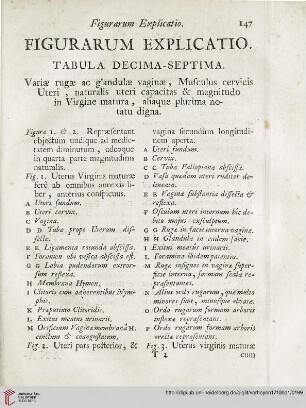 Figurarum Explicatio. 147
FIGURARUM EXPLICATIO.
TABULA DECIMA-SEPTIMA.
Variæ rugæ ac glandulæ vaginæ, Musculus cervicis
Uteri, naturalis uteri capacitas & magnitudo
in Virgine matura, aliaque plurima no-
tatu digna.
Figura 1. & 2. Repræsentant
objectum undique ad medie-
tatem diminutum, adeoque
in quarta parte magnitudinis
naturalis.
Fig. 1. Uterus Virginis maturæ
ferè ab omnibus annexis li-
ber, anterius conspicuus.
A Uteri fundum.
B Uteri cervix.
C Vagina.
D D Tuba prope Uterum dis-
sectæ.
E E Ligamenta rotunda abscissa.
F Foramen ubi vesica abscissa est.
G G Labia pudendorum exteror-
sum reflexa.
H Membrana Hymen.
I Clitoris cum adhærentibus Nym-
phis.
K Præputium Clitoridis.
L Exitus meatus urinarii.
M Orificium Vaginæ membranâ H.
cinctum & coangustatum.
Fig. 2. Uteri pars posterior, &
vagina secundum longitudi-
nem aperta.
A Uteri fundum.
B Cervix.
C C Tuba Fallopiana abscissa.
D Vasa quædam uteri nuditer de-
lineata.
E E Vagina substantia dissecta &
reflexa.
F Osculum uteri internum hic de-
bito majus exsculptum.
G G Rugæ in facie interna vaginæ.
H H Glandulæ in eadem sitæ.
I Exitus meatus urinarii.
L Foramina ibidem patentia.
M Ruga insignes in vagina facie
interna, formam scalæ repræ-
sentantes.
N Alius ordo rugarum, quæ multo
minores sunt, minusque elevatæ.
O Ordo rugarum formam arboris
inflexæ repræsentans.
P Ordo rugarum formam arboris
erectæ repræsentans.
Fig. 3. Uterus virginis maturæ
T 2 cum